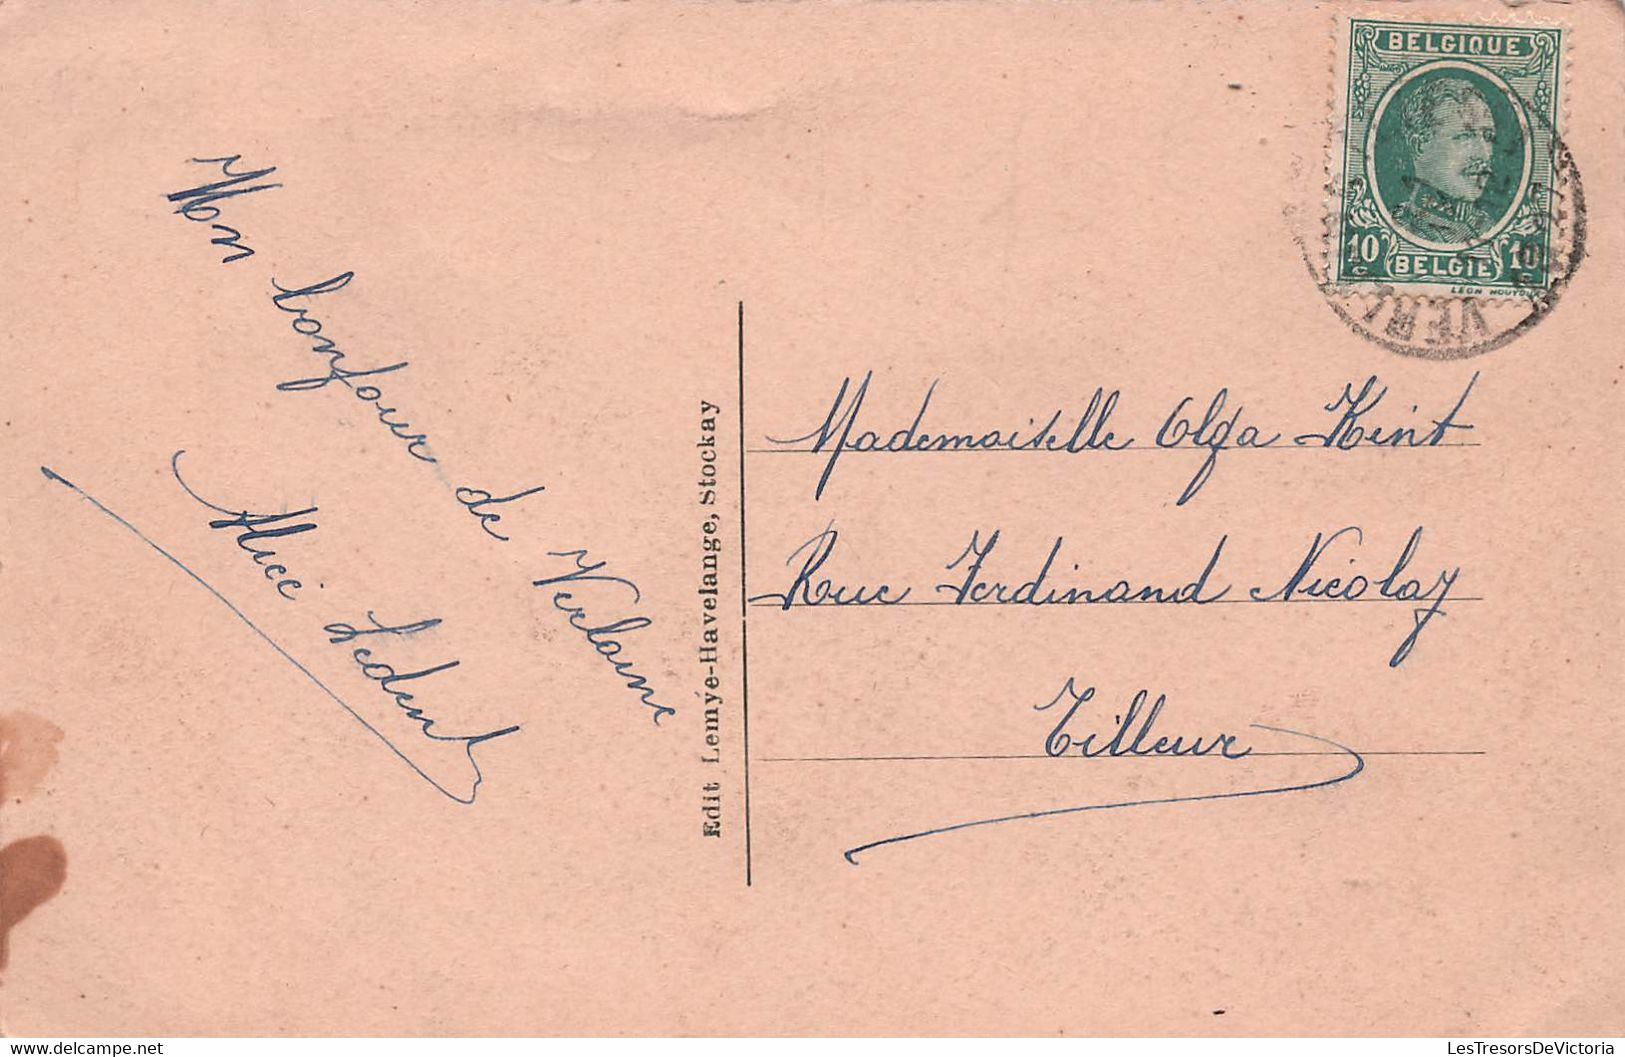 BELGIQUE
10 10
BELGIE
VERL
Mon bonjour de Verlaine
Alice Ledent
Edit Lemye-Havelange, Stockay
Mademoiselle Olga Kint
Rue Ferdinand Nicolay
Tilleur
LesTresorsDeVictoria